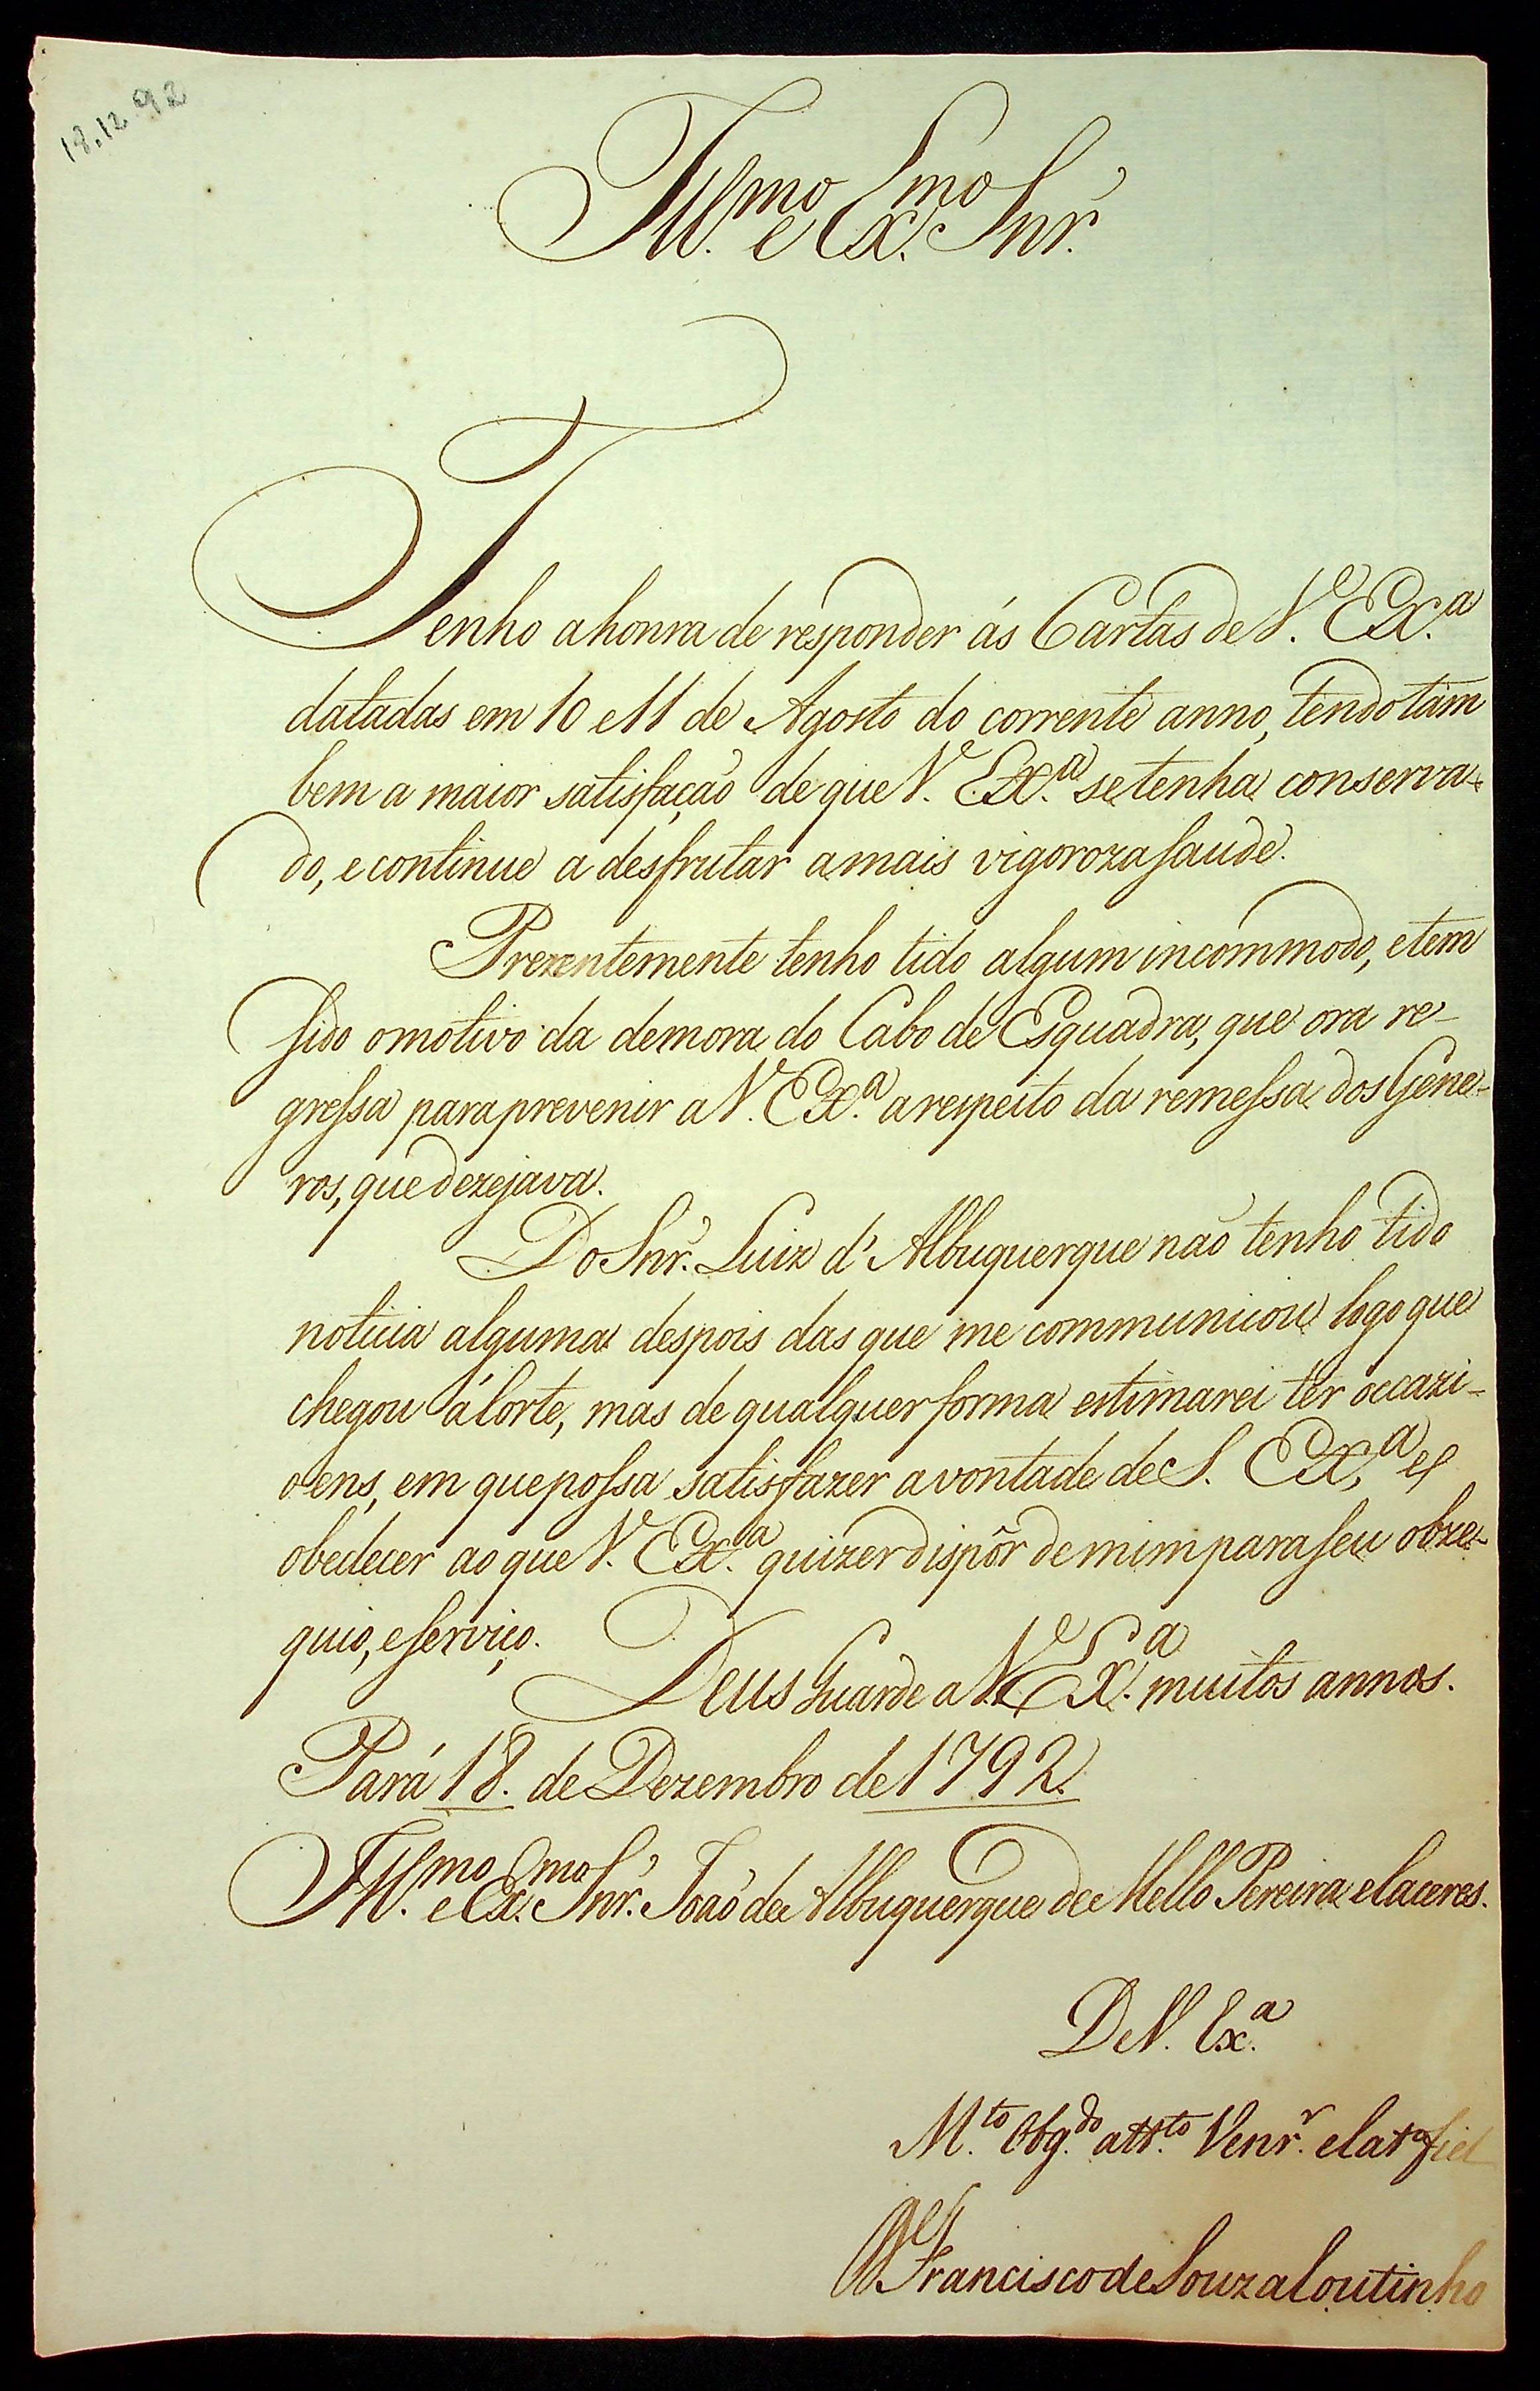 18.12.92
Ill.mo e Ex.mo Snr.
Tenho a honra de responder ás Cartas de V. Ex.a
datadas em 10 e 11 de Agosto do corrente anno, tendo tam
bem a maior satisfação de que V. Ex.a se tenha conserva-
do, e continue a desfrutar a mais vigoroza saude.
Prezentemente tenho tido algum incommodo, e tem
sido o motivo da demora do Cabo de Esquadra, que ora re-
gressa para prevenir a V. Ex.a a respeito da remessa dos Gene-
ros, que dezejava.
Do Snr. Luiz d'Albuquerque não tenho tido
noticia alguma despois das que me communicou logo que
chegou á Corte, mas de qualquer forma estimarei ter occazi-
oens, em que possa satisfazer a vontade de S. Ex.a, e
obedecer ao que V. Ex.a quizer dispôr de mim para seu obze-
quio, e serviço.
Deus Guarde a V. Ex.a muitos annos.
Pará 18. de Dezembro de 1792.
Ill.mo e Ex.mo Snr. João de Albuquerque de Mello Pereira e Caceres.
De V. Ex.a
M.to Obg.do att.to Venr.r e Cat.o fiel
D. Francisco de Souza Coutinho